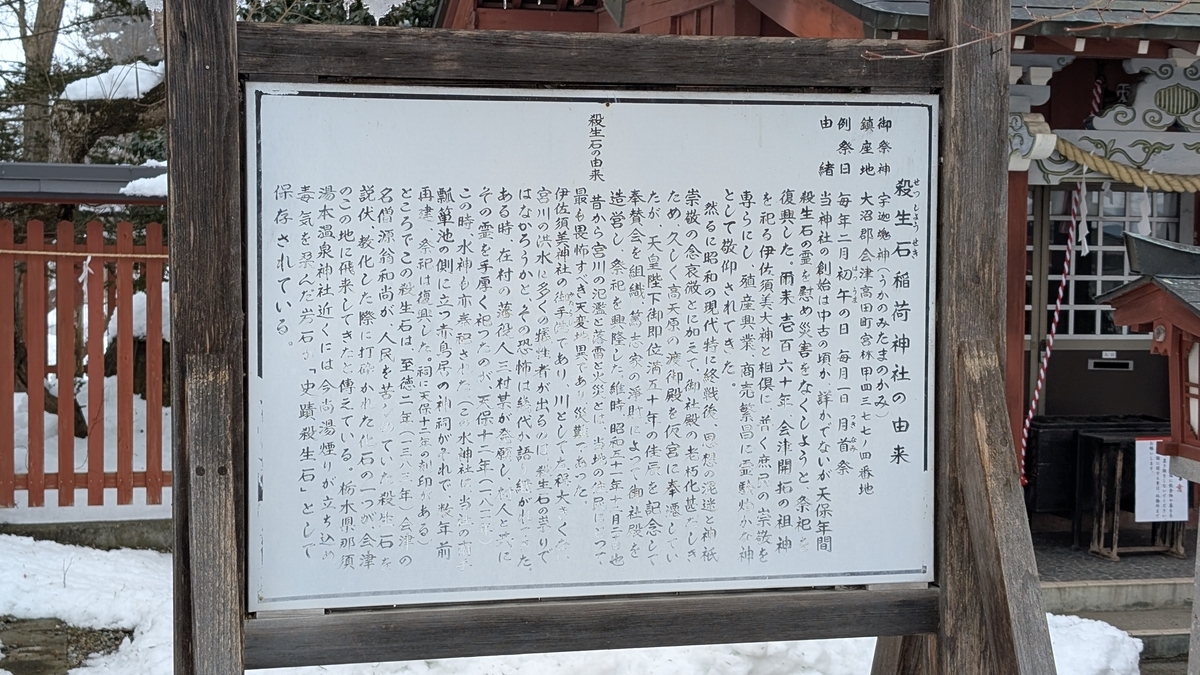 殺生石稲荷神社の由来
せっしょうせき
御祭神 宇迦魂神(うかのみたまのかみ)
鎮座地 大沼郡会津高田町宮林甲四三七七ノ四番地
例祭日 毎年二月初午の日 毎月一日 首祭
由緒 当神社の創始は中古の頃か、詳かでないが天保年間
殺生石の霊を慰め災害をなくしようと、祭祀を
復興した。爾来壱百六十年、会津開拓の祖神
を祀る伊佐須美大神と相倶に、普く庶民の崇敬を
専らにし、殖産興業、商売繁昌に霊験 かな神
として敬仰されてきた。
然るに昭和の現代特に終戦後、思想の混迷と神祇
崇敬の念衰微とに加えて、御社殿の老朽化甚だしき
ため、久しく高天原の渡御殿を仮宮に奉遷してい
たが、天皇陛下御即位満五十年の佳辰を記念して
奉賛会を組織、篤志家の浄財によって御社殿を
造営し、祭祀を興隆した。維時昭和五十一年十一月二 也
殺生石の由来
昔から宮川の氾濫と落雷と火災とは、当地の住民にとって
最も畏怖すべき天変地異であり災難であった。
伊佐須美神社の御手洗であり、川としてた程大きくない
宮川の洪水に多くの犠牲者が出るのは、殺生石の祟りで
はなかろうかと、その恐怖は終代か語り継がれてきた。
ある時、在村の落役人三村某が発願し、 人と共に
その霊を手厚く祀ったのが、天保十二年(一八 )
この時、水神も亦 祀された(この水神社 当
瓢箪池の側に立つ赤鳥居の神祠がそれで、数年前
再建、祭祀は復興した。祠に天保十二年の刻印がある)
ところでこの殺生石は、至徳二年(一三八 年)会津の
名僧源翁和尚が、人民を苦しめていた殺生石を
説伏、教化した際に打砕かれた化石の一つが会津
のこの地に飛来してきたと傳えている。栃木県那須
湯本温泉神社近くには今尚湯煙りが立ち込め
毒気を孕んだ岩石が「史蹟殺生石」として
保存されている。